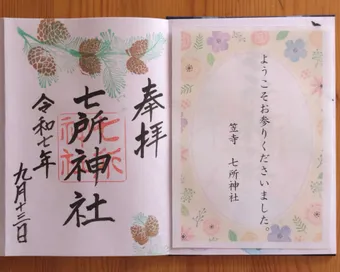 ようこそお参りくださいました。
笠寺 七所神社
奉拝
七所神社
令和七年
九月十三日